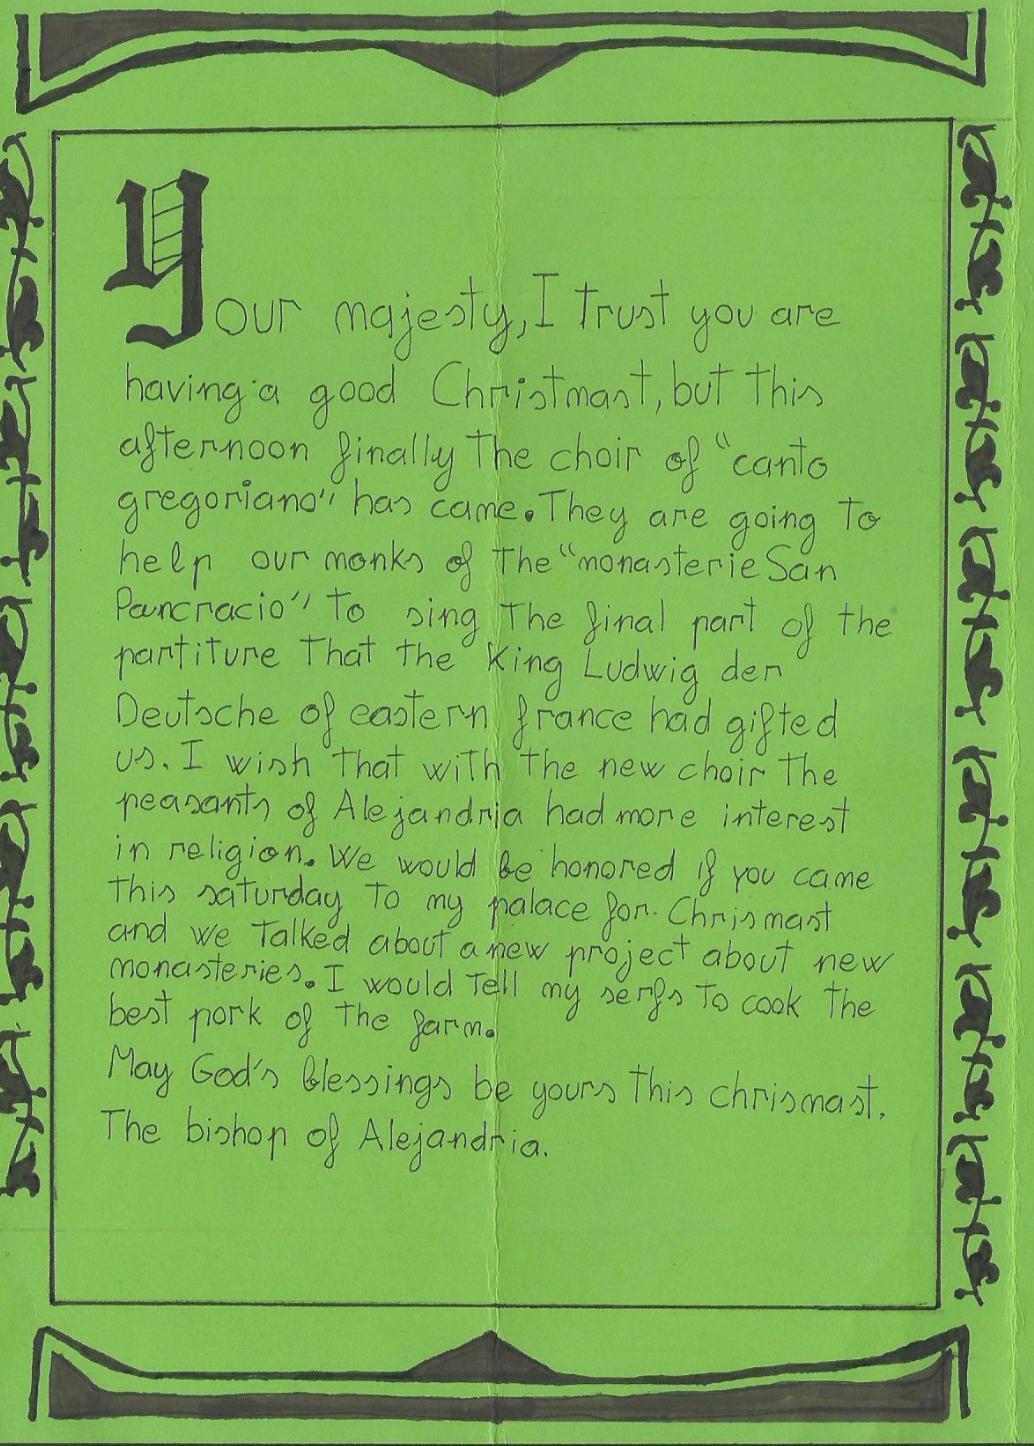 Your majesty, I trust you are
having a good Christmast, but this
afternoon finally the choir of "canto
gregoriano" has came. They are going to
help our monks of the "monasterie San
Pancracio" to sing the final part of the
partiture that the King Ludwig der
Deutsche of eastern france had gifted
us. I wish that with the new choir the
peasants of Alejandria had more interest
in religion. We would be honored if you came
this saturday to my palace for Chrismast
and we talked about a new project about new
monasteries. I would tell my serfs to cook the
best pork of the farm.
May God's blessings be yours this chrismast.
The bishop of Alejandria.